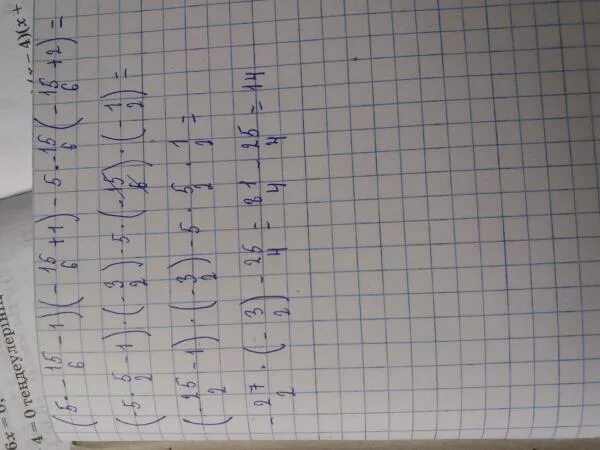 6x = 0,
4 = 0 теңдеулерінің
– 4)(x +
(5 · - 15/6 - 1)(- 15/6 + 1) - 5 · 15/6 (- 15/6 + 2) =
(5 · 5/2 - 1) · (- 3/2) · 5 · (- 15/6) · (- 1/2) =
(- 25/2 - 1) · (- 3/2) - 5 · 5/2 · 1/2 =
- 27/2 · (- 3/2) - 25/4 = 81/4 - 25/4 = 14